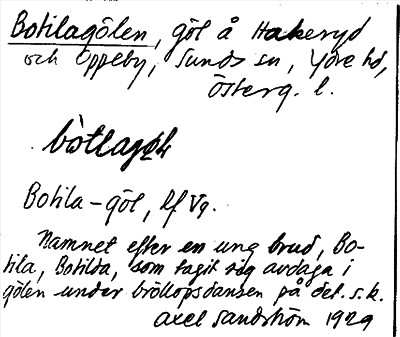 Botilagölen, göl å Hakeryd
och Oppeby, Sunds sn, Ydre hd,
Österg. l.
Botila-göl, Rf Vg.
Namnet efter en ung brud, Bo-
tila, Botilda, som tagit sig avdaga i
gölen under bröllopsdansen på det. s.k.
Axel Sandström 1929